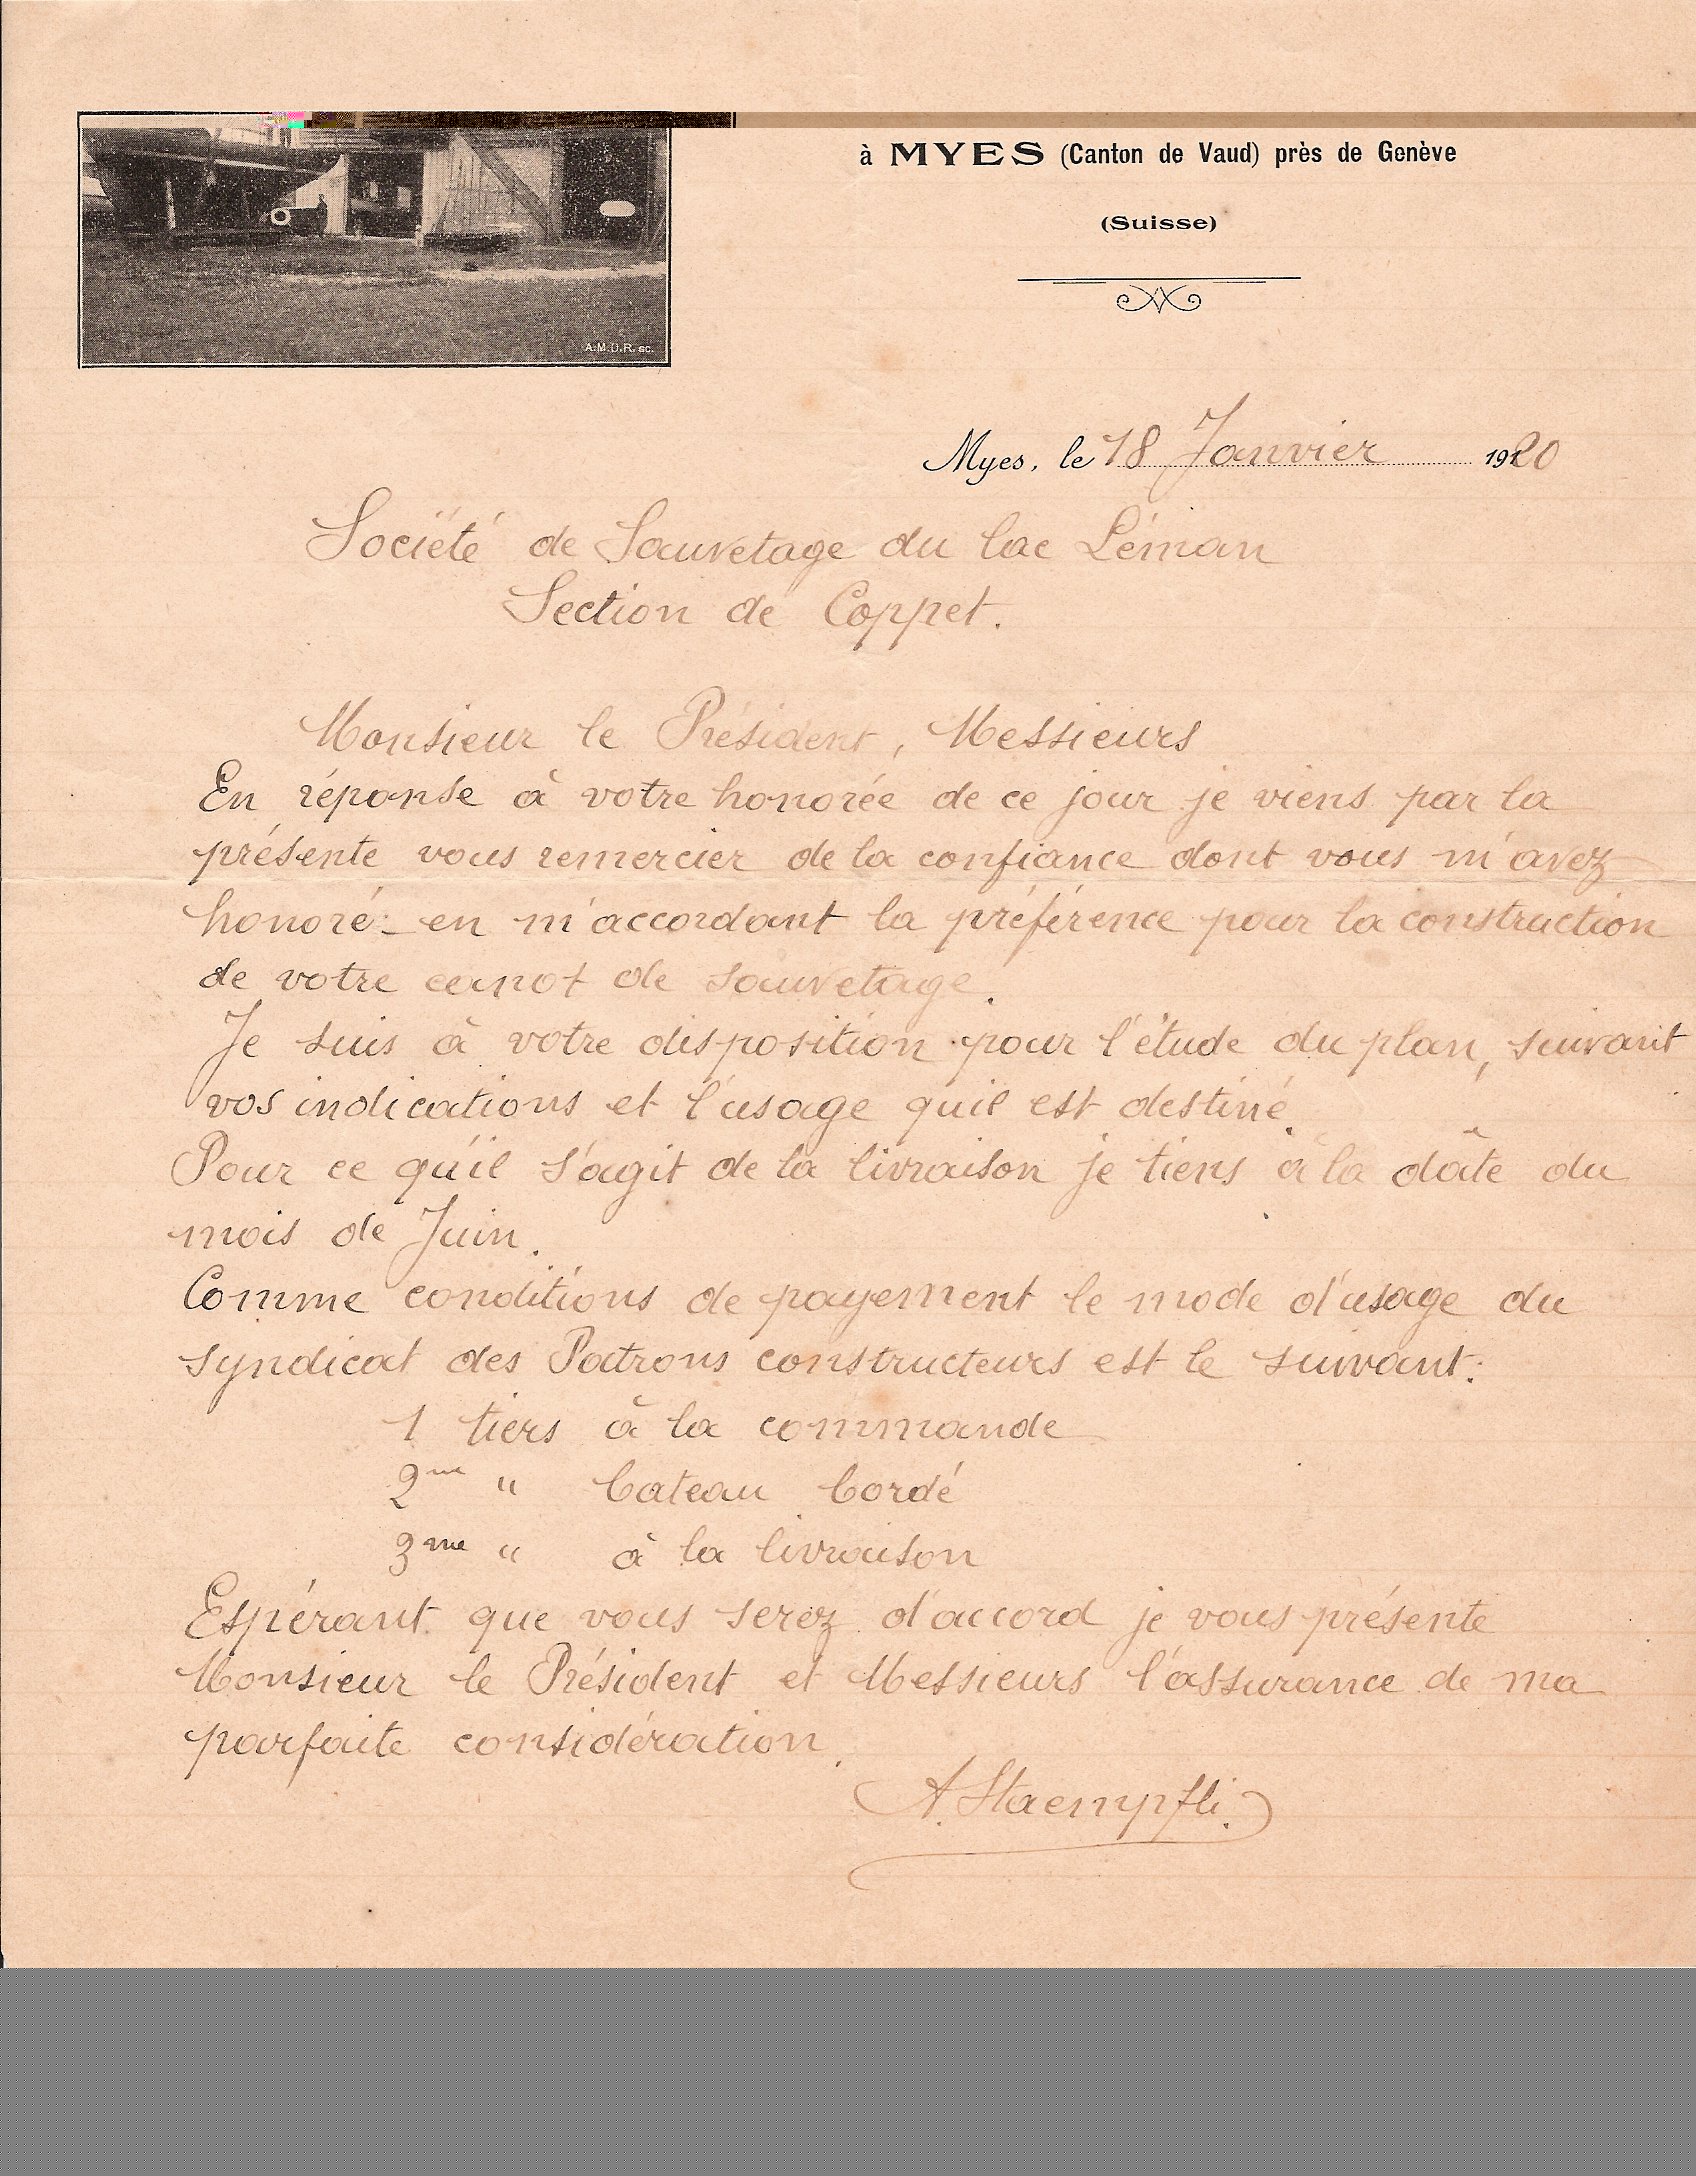 à MYES (Canton de Vaud) près de Genève
(Suisse)
A.M.D.R. sc.
Myes, le 18 Janvier 1920
Société de Sauvetage du lac Léman
Section de Coppet.
Monsieur le Président, Messieurs
En réponse à votre honorée de ce jour je viens par la
présente vous remercier de la confiance dont vous m'avez
honoré en m'accordant la préférence pour la construction
de votre canot de sauvetage.
Je suis à votre disposition pour l'étude du plan, suivant
vos indications et l'usage quil est destiné.
Pour ce qu'il s'agit de la livraison je tiens à la dâte du
mois de Juin.
Comme conditions de payement le mode d'usage du
syndicat des Patrons constructeurs est le suivant:
1 tiers à la commande
2me " bateau bordé
3me " à la livraison
Espérant que vous serez d'accord je vous présente
Monsieur le Président et Messieurs l'assurance de ma
parfaite considération.
A. Staempfli.